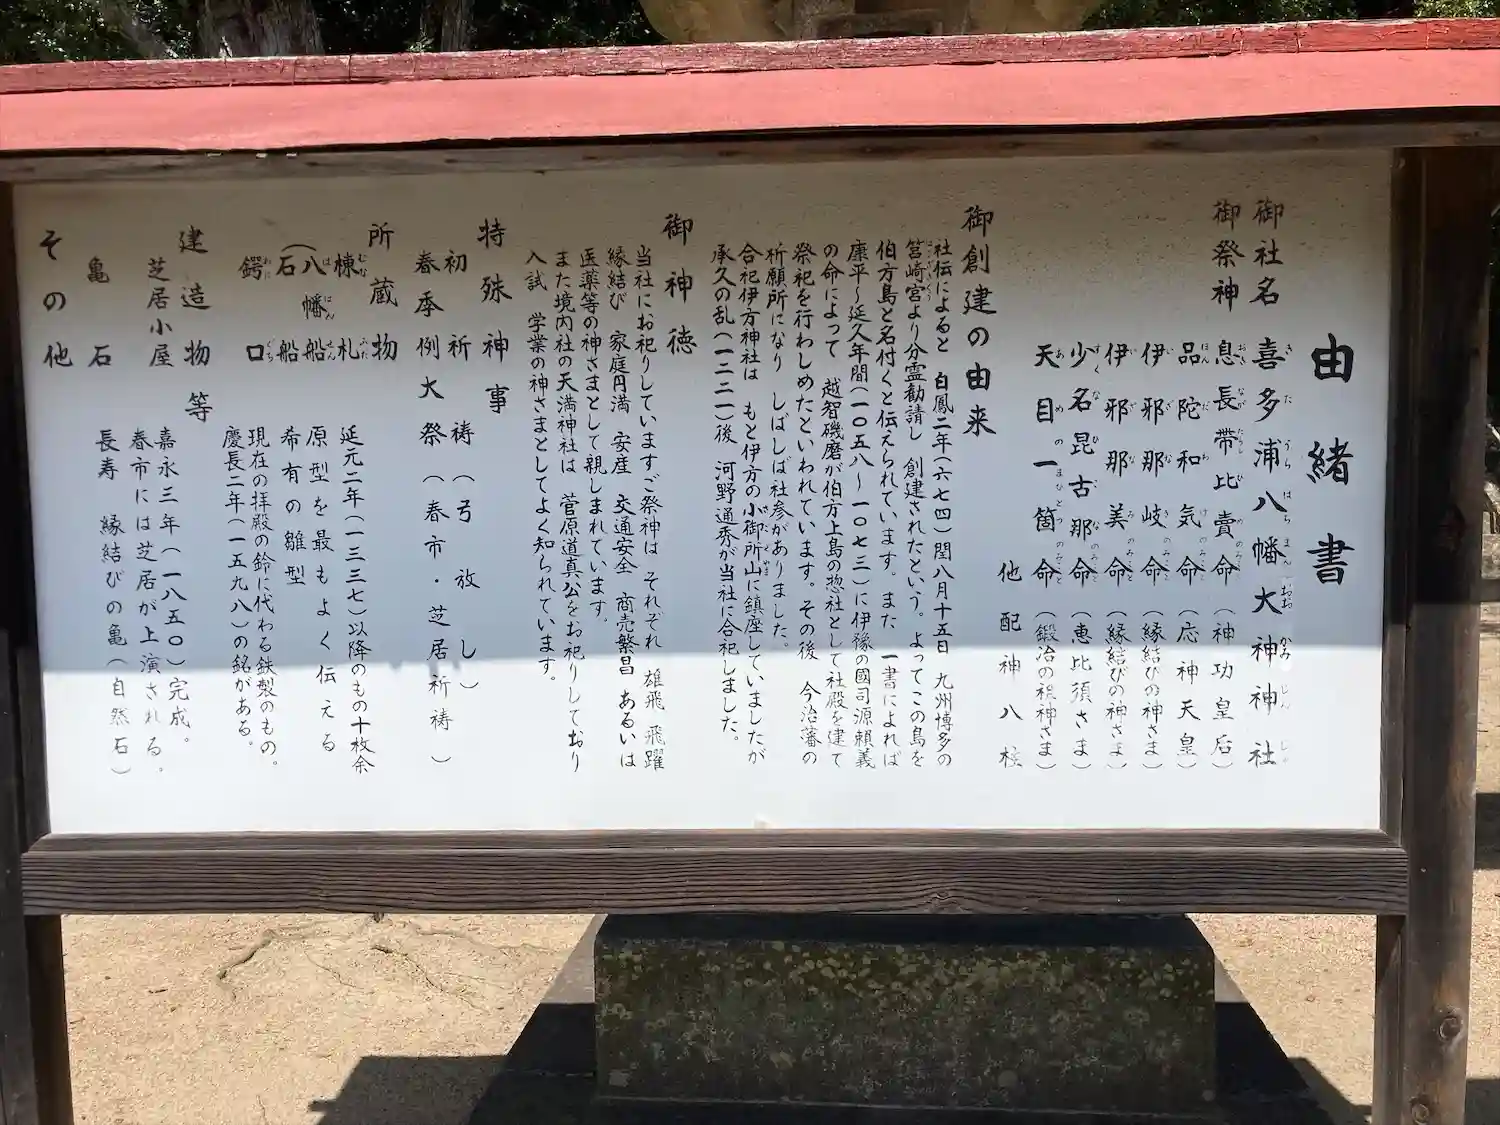 由緒書
御社名 喜多浦八幡大神神社
御祭神 息長帯比賣命(神功皇后)
品陀和気命(応神天皇)
伊邪那岐命(縁結びの神さま)
伊邪那美命(縁結びの神さま)
少名昆古那命(恵比須さま)
天目一箇命(鍛治の祖神さま)
他配神八柱
御創建の由来
社伝によると 白鳳二年(六七四)閏八月十五日 九州博多の
筥崎宮より分霊勧請し 創建されたという。よってこの島を
伯方島と名付くと伝えられています。また 一書によれば
康平~延久年間(一〇五八~一〇七三)に伊豫の國司源頼義
の命によって 越智磯磨が伯方上島の惣社として社殿を建て
祭祀を行わしめたといわれています。その後 今治藩の
祈願所になり しばしば社参がありました。
合祀伊方神社は もと伊方の小御所山に鎮座していましたが
承久の乱(一二二一)後 河野通秀が当社に合祀しました。
御神徳
当社にお祀りしていますご祭神は それぞれ 雄飛 飛躍
縁結び 家庭円満 安産 交通安全 商売繁昌 あるいは
医薬等の神さまとして親しまれています。
また境内社の天満神社は 菅原道真公をお祀りしており
入試 学業の神さまとしてよく知られています。
特殊神事
初祈祷(弓放し)
春季例大祭(春市・芝居祈祷)
所蔵物
棟札 延元二年(一三三七)以降のもの十枚余
八幡船 原型を最もよく伝える
(石船 希有の雛型
鍔口 現在の拝殿の鈴に代わる鉄製のもの。
慶長二年(一五九八)の銘がある。
建造物等
芝居小屋 嘉永三年(一八五〇)完成。
春市には芝居が上演される。
その他
亀石 長寿 縁結びの亀(自然石)